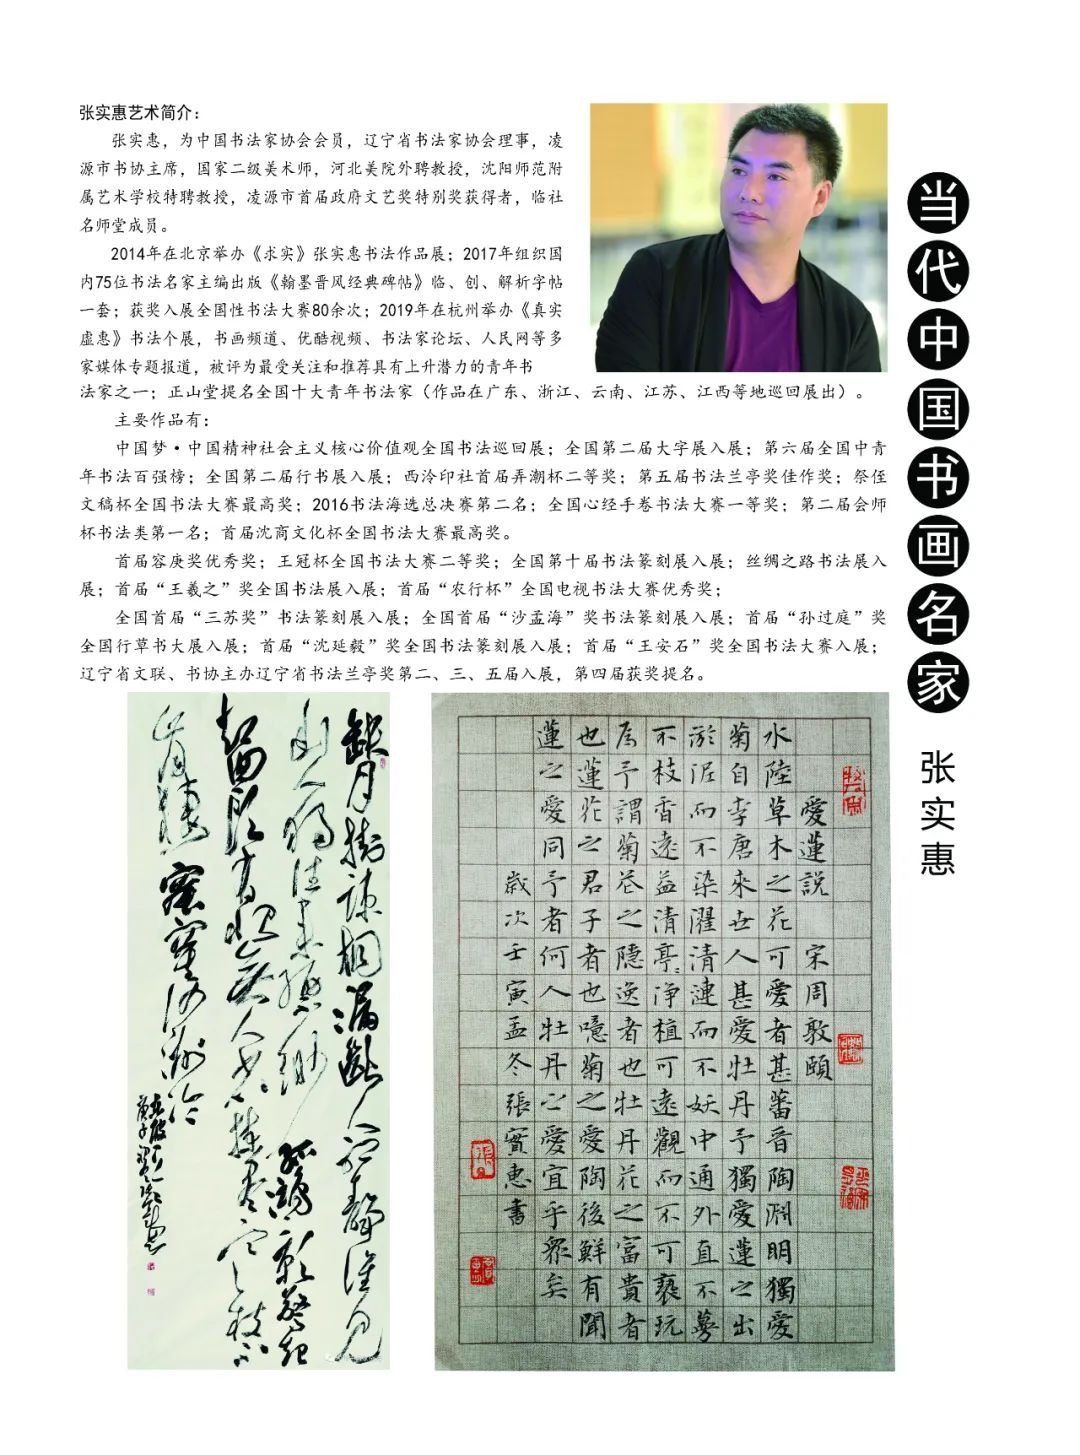 张实惠艺术简介：
张实惠，为中国书法家协会会员，辽宁省书法家协会理事，凌
源市书协主席，国家二级美术师，河北美院外聘教授，沈阳师范附
属艺术学校特聘教授，凌源市首届政府文艺奖特别奖获得者，临社
名师堂成员。
2014年在北京举办《求实》张实惠书法作品展；2017年组织国
内75位书法名家主编出版《翰墨晋风经典碑帖》临、创、解析字帖
一套；获奖入展全国性书法大赛80余次；2019年在杭州举办《真实
虚惠》书法个展，书画频道、优酷视频、书法家论坛、人民网等多
家媒体专题报道，被评为最受关注和推荐具有上升潜力的青年书
法家之一；正山堂提名全国十大青年书法家（作品在广东、浙江、云南、江苏、江西等地巡回展出）。
主要作品有：
中国梦·中国精神社会主义核心价值观全国书法巡回展；全国第二届大字展入展；第六届全国中青
年书法百强榜；全国第二届行书展入展；西泠印社首届弄潮杯二等奖；第五届书法兰亭奖佳作奖；祭侄
文稿杯全国书法大赛最高奖；2016书法海选总决赛第二名；全国心经手卷书法大赛一等奖；第二届会师
杯书法类第一名；首届沈商文化杯全国书法大赛最高奖。
首届容庚奖优秀奖；王冠杯全国书法大赛二等奖；全国第十届书法篆刻展入展；丝绸之路书法展入
展；首届“王羲之”奖全国书法展入展；首届“农行杯”全国电视书法大赛优秀奖；
全国首届“三苏奖”书法篆刻展入展；全国首届“沙孟海”奖书法篆刻展入展；首届“孙过庭”奖
全国行草书大展入展；首届“沈延毅”奖全国书法篆刻展入展；首届“王安石”奖全国书法大赛入展；
辽宁省文联、书协主办辽宁省书法兰亭奖第二、三、五届入展，第四届获奖提名。
当代中国书画名家
张实惠
缺月挂疏桐漏断人初静谁见
幽人独往来缥缈孤鸿影惊起
却回头有恨无人省拣尽寒枝不
肯栖寂寞沙洲冷
愛蓮說 宋周敦頤
水陸草木之花可愛者甚蕃晋陶淵明獨愛
菊自李唐來世人甚愛牡丹予獨愛蓮之出
淤泥而不染濯清漣而不妖中通外直不蔓
不枝香遠益清亭〻淨植可遠觀而不可褻玩
焉予謂菊花之隱逸者也牡丹花之富貴者
也蓮花之君子者也噫菊之愛陶後鮮有聞
蓮之愛同予者何人牡丹之愛宜乎眾矣
歲次壬寅孟冬張實惠書